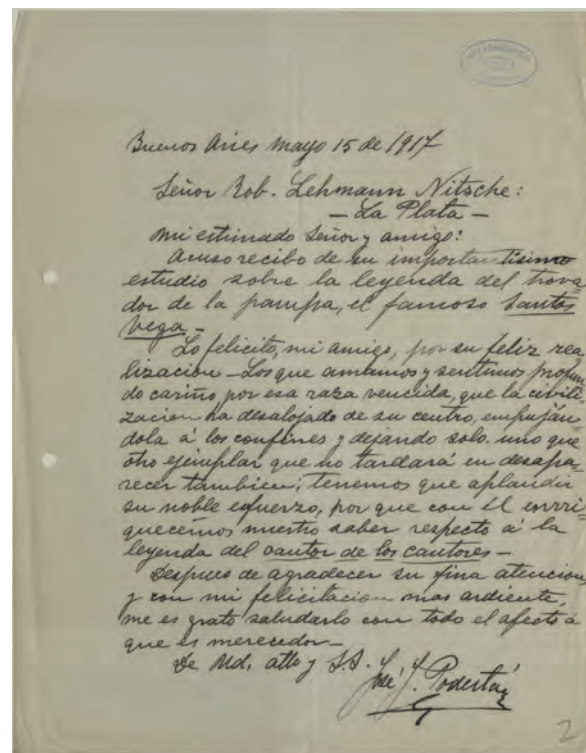 Buenos Aires mayo 15 de 1917
Señor Rob. Lehmann Nitsche:
— La Plata —
Mi estimado Señor y amigo:
Acuso recibo de su importantísimo
estudio sobre la leyenda del trova-
dor de la pampa, el famoso Santos
Vega —
Lo felicito, mi amigo, por su feliz rea
lización — Los que amamos y sentimos profun
do cariño por esa raza vencida, que la civili-
zacion ha desalojado de su centro, empuján-
dola á los confines y dejando solo uno que
otro ejemplar que no tardará en desapa-
recer tambien; tenemos que aplaudir
su noble esfuerzo, por que con él enrri-
quecemos nuestro saber respecto á la
leyenda del cantor de los cantores —
Despues de agradecer su fina atencion
y con mi felicitacion mas ardiente,
me es grato saludarlo con todo el afecto á
que es merecedor —
De Ud. atto y S.S. José J. Podestá
2